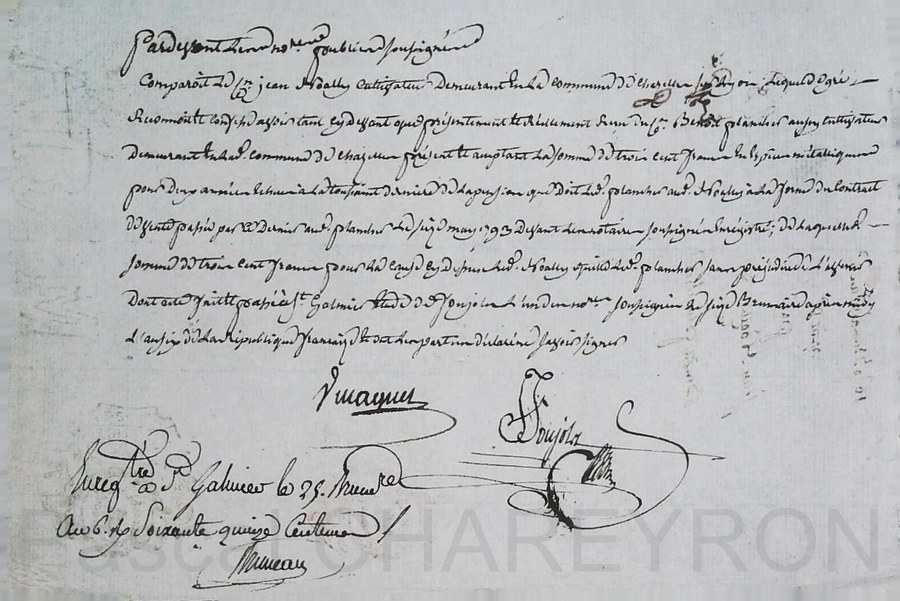 Pardevant Les no.res publics soussignés
Comparoit Le c.en jean Noally Cultivateur Demeurant En La Commune de Chazelles sur Lyon, Lequel de gré
Reconnoit Confesse avoir tant Cy devant que présentement et Réellement Reçu du c.en Benoit planchet aussy cultivateur
Demeurant En Lad. Commune de Chazelles présent et acceptant La somme de trois cent francs En Espèces métalliques
pour deux années Echues à La toussaint dernière de La pension que doit Led. planchet aud. Noally à La forme du Contrat
de vente passé par Ce Dernier aud. planchet Le seize may 1793 devant L'un notaire soussigné Enregistré; de Laquelle
somme de trois cent francs pour La Cause Cy dessus Led. Noally quitte Led. planchet sans préjudice de L'avenir
Dont acte fait et passé à S.t Galmier Etude de Soujols L'un des no.res soussignés Le seize Brumaire après midy
L'an six de La République française et ont Les parties déclaré ne savoir signer
Vmaguet
Soujols
Enreg.tré à S.t Galmier le 25. Brum.re
An 6. R. Soixante quinze Centimes /
Pascal CHAREYRON